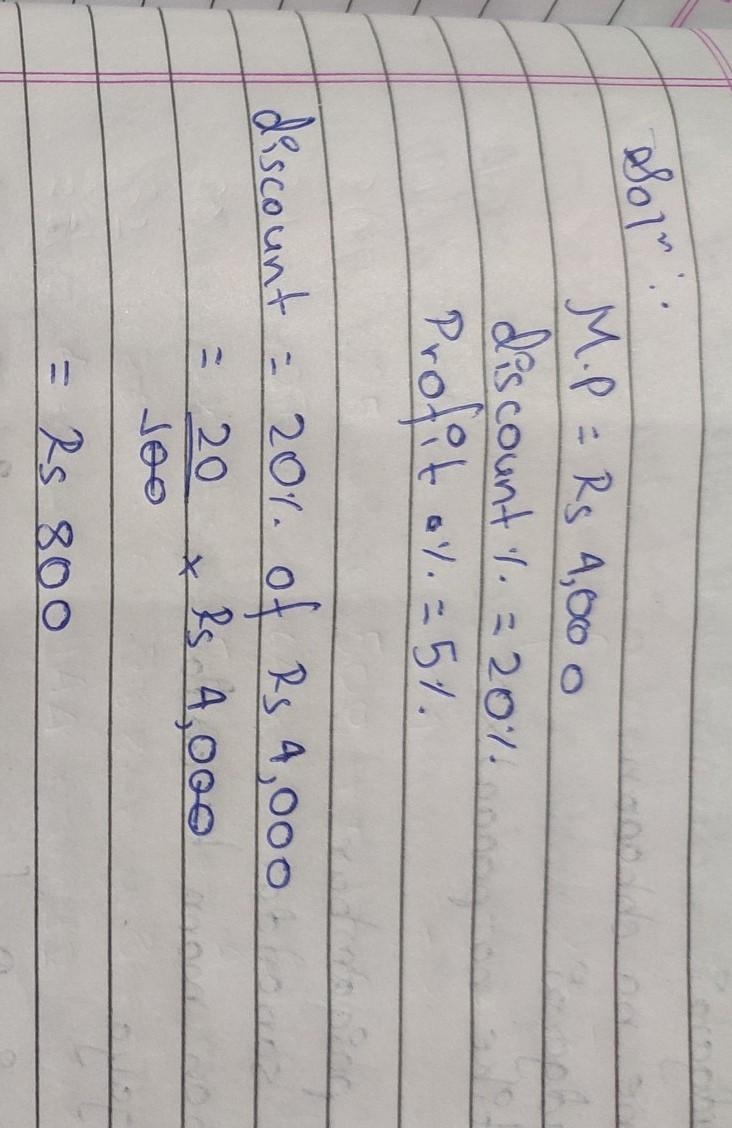 Solⁿ:
M.P = Rs 4,000
discount % = 20%
Profit % = 5%
discount = 20% of Rs 4,000
= 20/100 × Rs 4,000
= Rs 800